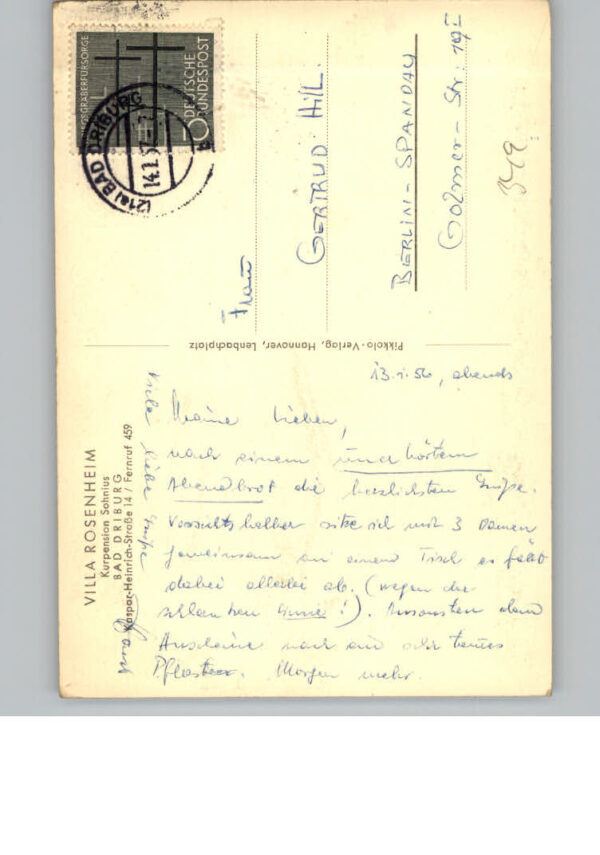 KRIEGSGRÄBERFÜRSORGE
DEUTSCHE
BUNDESPOST
10
(21a) BAD DRIBURG
14.1.57
Frau
GERTRUD HILL
BERLIN-SPANDAU
Golmer-Str. 19I
Pikkolo-Verlag, Hannover, Lenbachplatz
VILLA ROSENHEIM
Kurpension Sohnius
BAD DRIBURG
Kaspar-Heinrich-Straße 14 / Fernruf 459
13.1.56, abends
Meine Lieben,
nach einem unerhörtem
Abendbrot die herzlichsten Grüße.
Vorsichtshalber sitze ich mit 3 Damen
gemeinsam an einem Tisch es fällt
dabei allerlei ab. (wegen der
schlanken Linie!). Ansonsten dem
Anscheine nach ein sehr teures
Pflaster. Morgen mehr.
Viele liebe Grüße